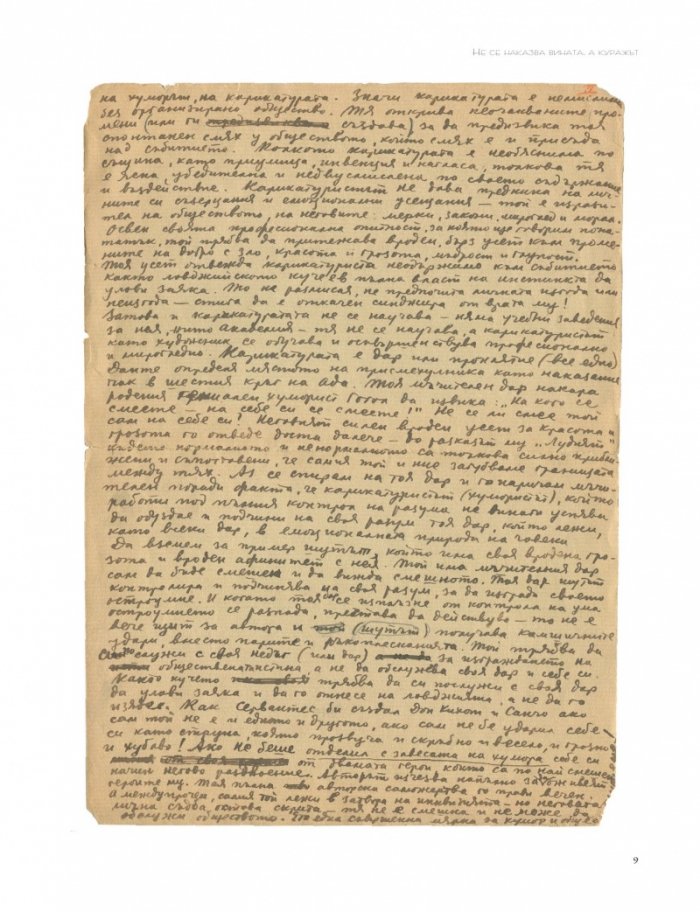 НЕ СЕ НАКАЗВА ВИНАТА, А КУРАЖЪТ
на хуморът, на карикатурата. Значи карикатурата е немислима
без организирано общество. Тя открива неочакваните про-
мени (или би създава) за да предизвика тоя
спонтанен смях у обществото, който смях е и присъда
над събитието. Колкото карикатурата е необяснима по
същина, като приумица, инвенция и нагласа, толкова тя
е ясна, убедителна и недвусмислена по своето съдържание
и въздействие. Карикатуристът не дава преднина на лич-
ните си съзерцания и емоционални усещания – той е изрази-
тел на обществото, на неговите: мерки, закони, мироглед и морал.
Освен своята професионална опитност, за която ще говорим пона-
татък, той трябва да притежава вроден, бърз усет към проме-
ните на добро с зло, красота и грозота, мъдрост и глупост.
Тоя усет отвежда карикатуриста необържимо към събитието
както ловджийското куче в пълна власт на инстинкта да
улови заяка. То не размисля, не предпочита личната изгода или
неизгода – стига да е откачен синджира от врата му!
Затова и карикатурата не се научава – няма учебни заведения
за нея, нито Академия – тя не се научава, а карикатуристът
като художник се обучава и освършенствува професионално
и мирогледно. Карикатурата е дар или проклятие (все едно)
Данте определя мястото на присмехулника като наказание
чак в шестия кръг на Ада. Тоя мъчителен дар накара
родения гениален хуморист Гогол да извика: „На кого се
смеете – на себе си се смеете!" Не се ли смее той
сам на себе си! Неговият силен вроден усет за красота и
грозота го отведе доста далече – до разказът му „Лудият"
където нормалното и ненормалното са толкова силно прибли-
жени и съпоставени, че самия той и ние загубваме границата
между тях. Аз се спирам на тоя дар и го наричам мъчи-
телен поради факта, че карикатуристът (хумористът), който
работи под пълния контрол на разума не винаги успява
да обуздае и подчини на своя разум тоя дар, който лежи,
като всеки дар, в емоционалната природа на човека
Да вземем за пример шутът, който има своя вродена гро-
зота и вроден афинитет с нея. Той има мъчителния дар
сам да бъде смешен и да вижда смешното. Тоя дар шутът
контролира и подчинява на своя разум, за да изгради своето
остроумие. И когато тоя се изплъзне от контрола на ума
остроумието се разпада, престава да действува – то не е
вече щит за автора и (шутът) получава камшичните
удари, вместо парите и ръкоплясканията. Той трябва да
служи с своя недъг (или дар) за изграждането на
обществената истина, а не да обслужва своя дар и себе си.
Както кучето трябва да си послужи с своя дар
да улови заяка и да го отнесе на ловджията, а не да го
изяде. Как Сервантес би създал Дон Кихот и Санчо ако
сам той не е и едното и другото, ако сам не бе ударил себе-
си като струна, която прозвуча и скръбно и весело, и грозно
и хубаво! Ако не беше отделил с завесата на хумора себе си
от двамата герои, които са по най-смешен
начин негово раздвоение. Авторът изчезва напълно за да оживеят
героите му. Тая пълна авторска саможертва го прави вечен.
А между прочем, самия той лежи в затвора на инквизицията – но неговата
лична съдба остава скрита – тя не е смешна и не може да
обслужи обществото. Ето една съвършенна мярка за хумор и
9